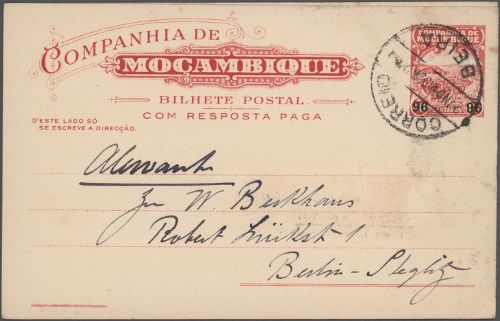 COMPANHIA DE
MOÇAMBIQUE
BILHETE POSTAL.
COM RESPOSTA PAGA
D'ESTE LADO SÓ
SE ESCREVE A DIRECÇÃO.
COMPANHIA DE
MOÇAMBIQUE
CORREIO
BEIRA
96 96
W. Beckhaus
Robert 1
Berlin-Steglitz